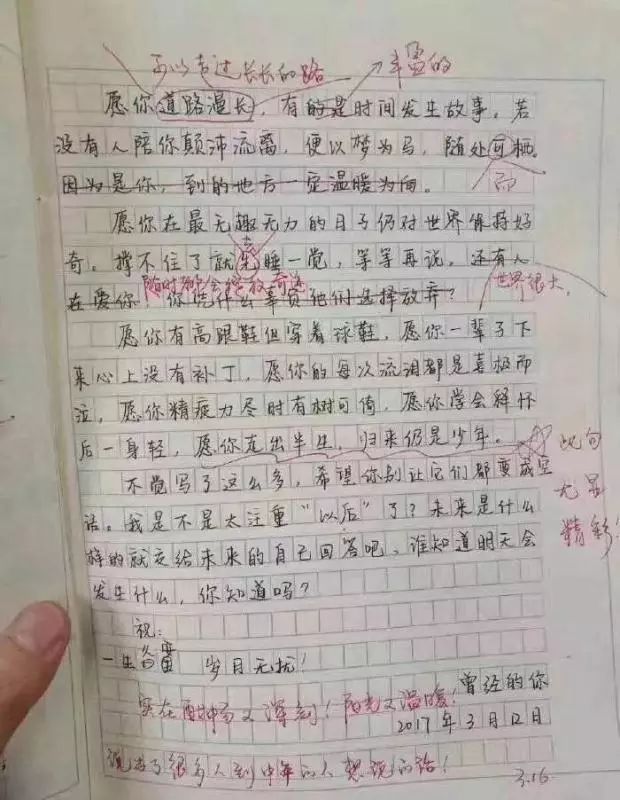 可以走过长长的路
丰盈的
愿你道路漫长，有的是时间发生故事。若
没有人陪你颠沛流离，便以梦为马，随处可栖。
而
因为是你，到的地方一定温暖为向。
愿你在最无趣无力的日子仍对世界保持好
去
奇。撑不住了就先睡一觉，等等再说。还有人
随时都会绽放奇迹
世界很大，
在爱你，你凭什么辜负他们选择放弃？
愿你有高跟鞋但穿着球鞋，愿你一辈子下
来心上没有补丁，愿你的每次流泪都是喜极而
泣，愿你精疲力尽时有树可倚，愿你学会释怀
后一身轻，愿你走出半生，归来仍是少年。
此句
尤显
精彩！
不觉写了这么多，希望你别让它们都变成空
话。我是不是太注重“以后”了？未来是什么
样的就交给未来的自己回答吧，谁知道明天会
发生什么，你知道吗？
祝：
一生 岁月无扰！
曾经的你
实在 又深刻！阳光又温暖！
2017年3月12日
说进了很多人到中年的人想说的话！
3.16